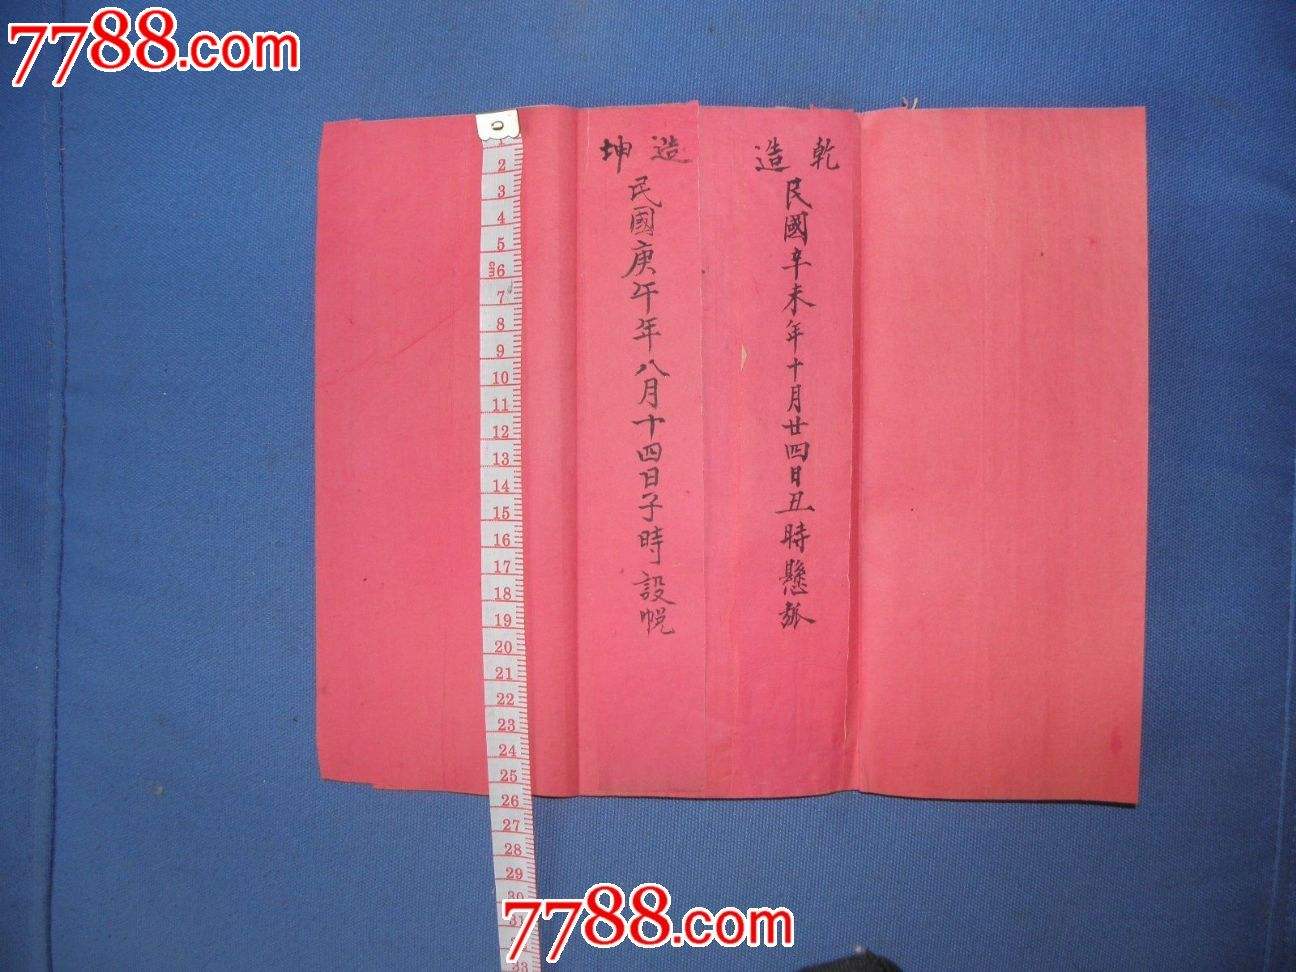 7788.com
乾造
民國辛未年十月廿四日丑時懸弧
坤造
民國庚午年八月十四日子時設帨
0
1
2
3
4
5
cm6
7
8
9
10
11
12
13
14
15
16
17
18
19
20
21
22
23
24
25
26
27
28
29
30
31
33
7788.com